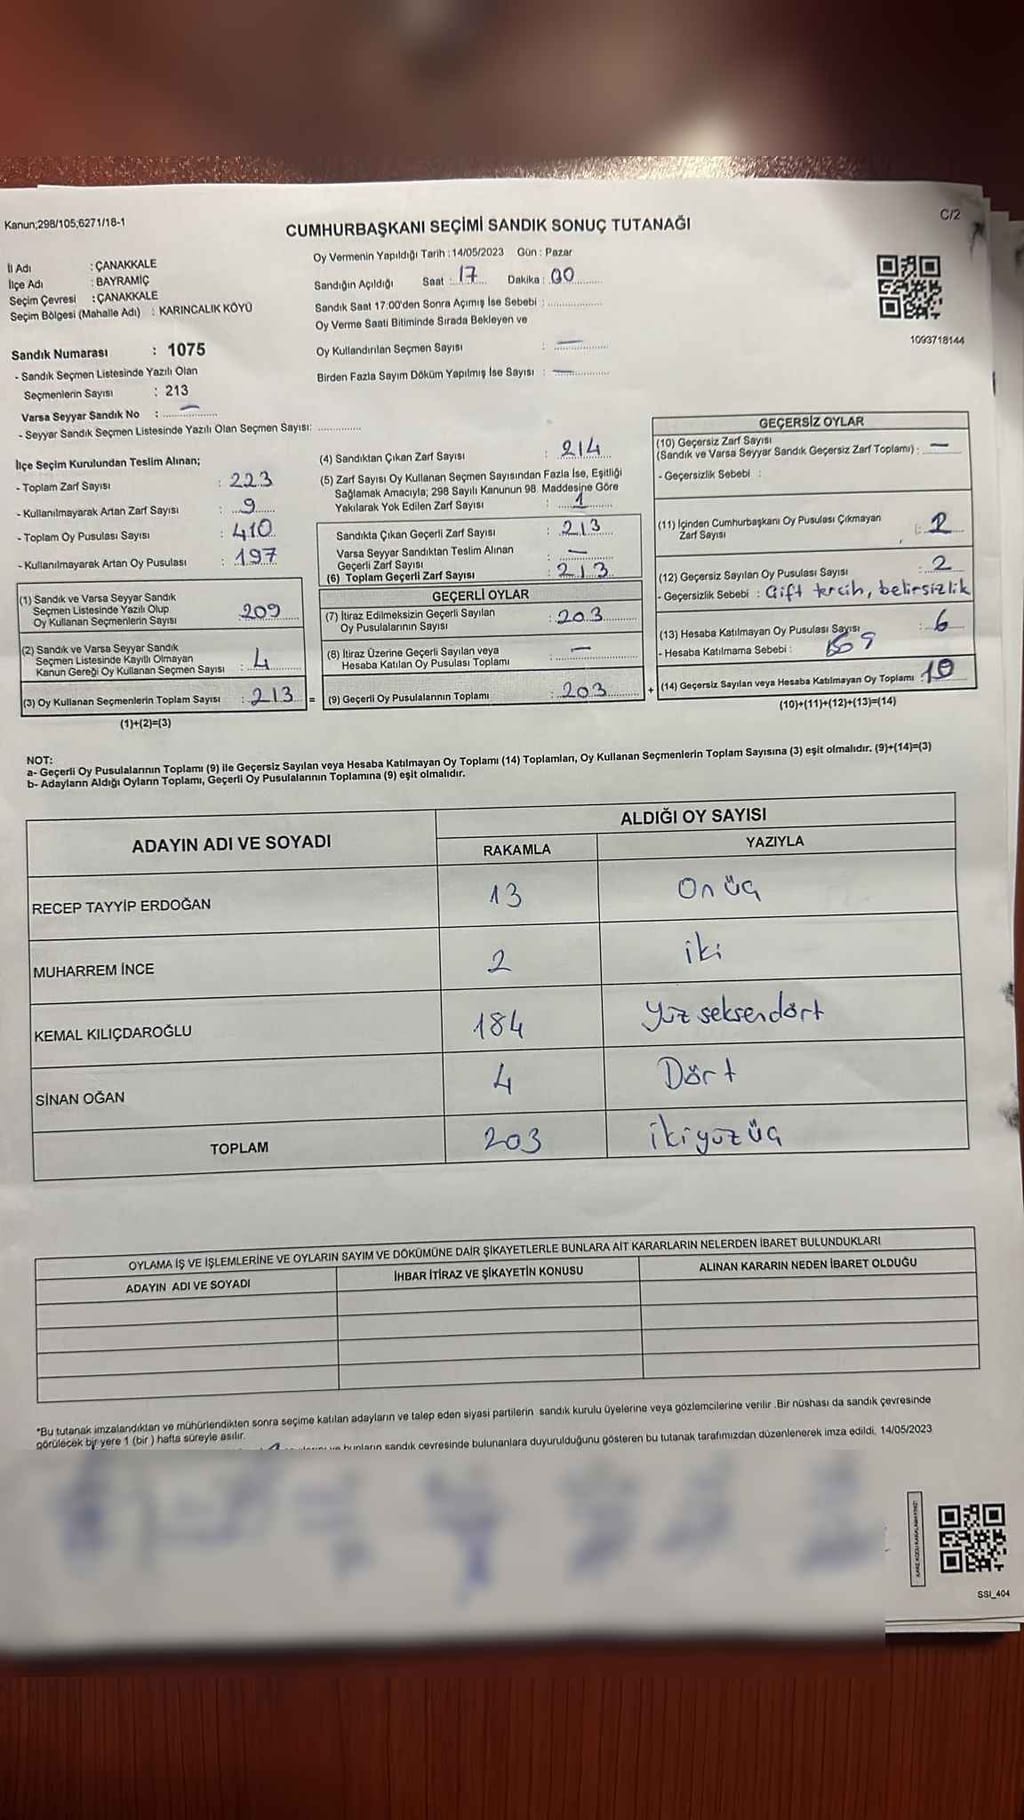 Kanun;298/105;6271/18-1
C/2
CUMHURBAŞKANI SEÇİMİ SANDIK SONUÇ TUTANAĞI
İl Adı : ÇANAKKALE
İlçe Adı : BAYRAMİÇ
Seçim Çevresi : ÇANAKKALE
Seçim Bölgesi (Mahalle Adı) : KARINCALIK KÖYÜ
Sandık Numarası : 1075
- Sandık Seçmen Listesinde Yazılı Olan
Seçmenlerin Sayısı : 213
Varsa Seyyar Sandık No : —
- Seyyar Sandık Seçmen Listesinde Yazılı Olan Seçmen Sayısı: ..............
Oy Vermenin Yapıldığı Tarih : 14/05/2023 Gün : Pazar
Sandığın Açıldığı Saat : 17 Dakika : 00
Sandık Saat 17:00'den Sonra Açımış İse Sebebi : ..............
Oy Verme Saati Bitiminde Sırada Bekleyen ve
Oy Kullandırılan Seçmen Sayısı : —
Birden Fazla Sayım Döküm Yapılmış İse Sayısı : —
1093718144
İlçe Seçim Kurulundan Teslim Alınan;
- Toplam Zarf Sayısı : 223
- Kullanılmayarak Artan Zarf Sayısı : 9
- Toplam Oy Pusulası Sayısı : 410
- Kullanılmayarak Artan Oy Pusulası : 197
(1) Sandık ve Varsa Seyyar Sandık
Seçmen Listesinde Yazılı Olup
Oy Kullanan Seçmenlerin Sayısı : 209
(2) Sandık ve Varsa Seyyar Sandık
Seçmen Listesinde Kayıllı Olmayan
Kanun Gereği Oy Kullanan Seçmen Sayısı : 4
(3) Oy Kullanan Seçmenlerin Toplam Sayısı : 213 =
(1)+(2)=(3)
(4) Sandıktan Çıkan Zarf Sayısı : 214
(5) Zarf Sayısı Oy Kullanan Seçmen Sayısından Fazla İse, Eşitliği
Sağlamak Amacıyla; 298 Sayılı Kanunun 98. Maddesine Göre
Yakılarak Yok Edilen Zarf Sayısı : 1
Sandıkta Çıkan Geçerli Zarf Sayısı : 213
Varsa Seyyar Sandıktan Teslim Alınan
Geçerli Zarf Sayısı : —
(6) Toplam Geçerli Zarf Sayısı : 213
GEÇERLİ OYLAR
(7) İtiraz Edilmeksizin Geçerli Sayılan
Oy Pusulalarının Sayısı : 203
(8) İtiraz Üzerine Geçerli Sayılan veya
Hesaba Katılan Oy Pusulası Toplamı : —
(9) Geçerli Oy Pusulalarının Toplamı : 203 +
GEÇERSİZ OYLAR
(10) Geçersiz Zarf Sayısı
(Sandık ve Varsa Seyyar Sandık Geçersiz Zarf Toplamı) : —
- Geçersizlik Sebebi :
(11) İçinden Cumhurbaşkanı Oy Pusulası Çıkmayan
Zarf Sayısı : 2
(12) Geçersiz Sayılan Oy Pusulası Sayısı : 2
- Geçersizlik Sebebi : Çift tercih, belirsizlik
(13) Hesaba Katılmayan Oy Pusulası Sayısı : 6
- Hesaba Katılmama Sebebi :
(14) Geçersiz Sayılan veya Hesaba Katılmayan Oy Toplamı : 10
(10)+(11)+(12)+(13)=(14)
NOT:
a- Geçerli Oy Pusulalarının Toplamı (9) ile Geçersiz Sayılan veya Hesaba Katılmayan Oy Toplamı (14) Toplamları, Oy Kullanan Seçmenlerin Toplam Sayısına (3) eşit olmalıdır. (9)+(14)=(3)
b- Adayların Aldığı Oyların Toplamı, Geçerli Oy Pusulalarının Toplamına (9) eşit olmalıdır.
ADAYIN ADI VE SOYADI ALDIĞI OY SAYISI
RAKAMLA YAZIYLA
RECEP TAYYİP ERDOĞAN 13 On üç
MUHARREM İNCE 2 iki
KEMAL KILIÇDAROĞLU 184 Yüz seksendört
SİNAN OĞAN 4 Dört
TOPLAM 203 ikiyüz üç
OYLAMA İŞ VE İŞLEMLERİNE VE OYLARIN SAYIM VE DÖKÜMÜNE DAİR ŞİKAYETLERLE BUNLARA AİT KARARLARIN NELERDEN İBARET BULUNDUKLARI
ADAYIN ADI VE SOYADI İHBAR İTİRAZ VE ŞİKAYETİN KONUSU ALINAN KARARIN NEDEN İBARET OLDUĞU
*Bu tutanak imzalandıktan ve mühürlendikten sonra seçime katılan adayların ve talep eden siyasi partilerin sandık kurulu üyelerine veya gözlemcilerine verilir .Bir nüshası da sandık çevresinde
görülecek bir yere 1 (bir ) hafta süreyle asılır.
bunların sandık çevresinde bulunanlara duyurulduğunu gösteren bu tutanak tarafımızdan düzenlenerek imza edildi. 14/05/2023
SSI_404